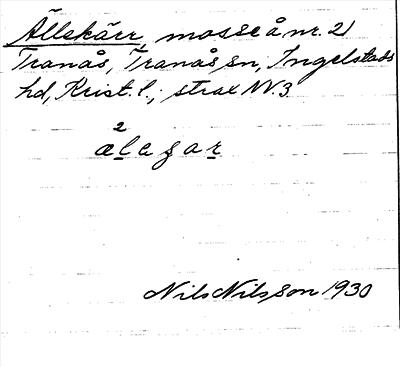 Ällskärr mosse å nr. 2
Tranås, Tranås sn, Ingelstads
hd, Krist. l.; strax NV. 3
2
Nils Nilsson 1930